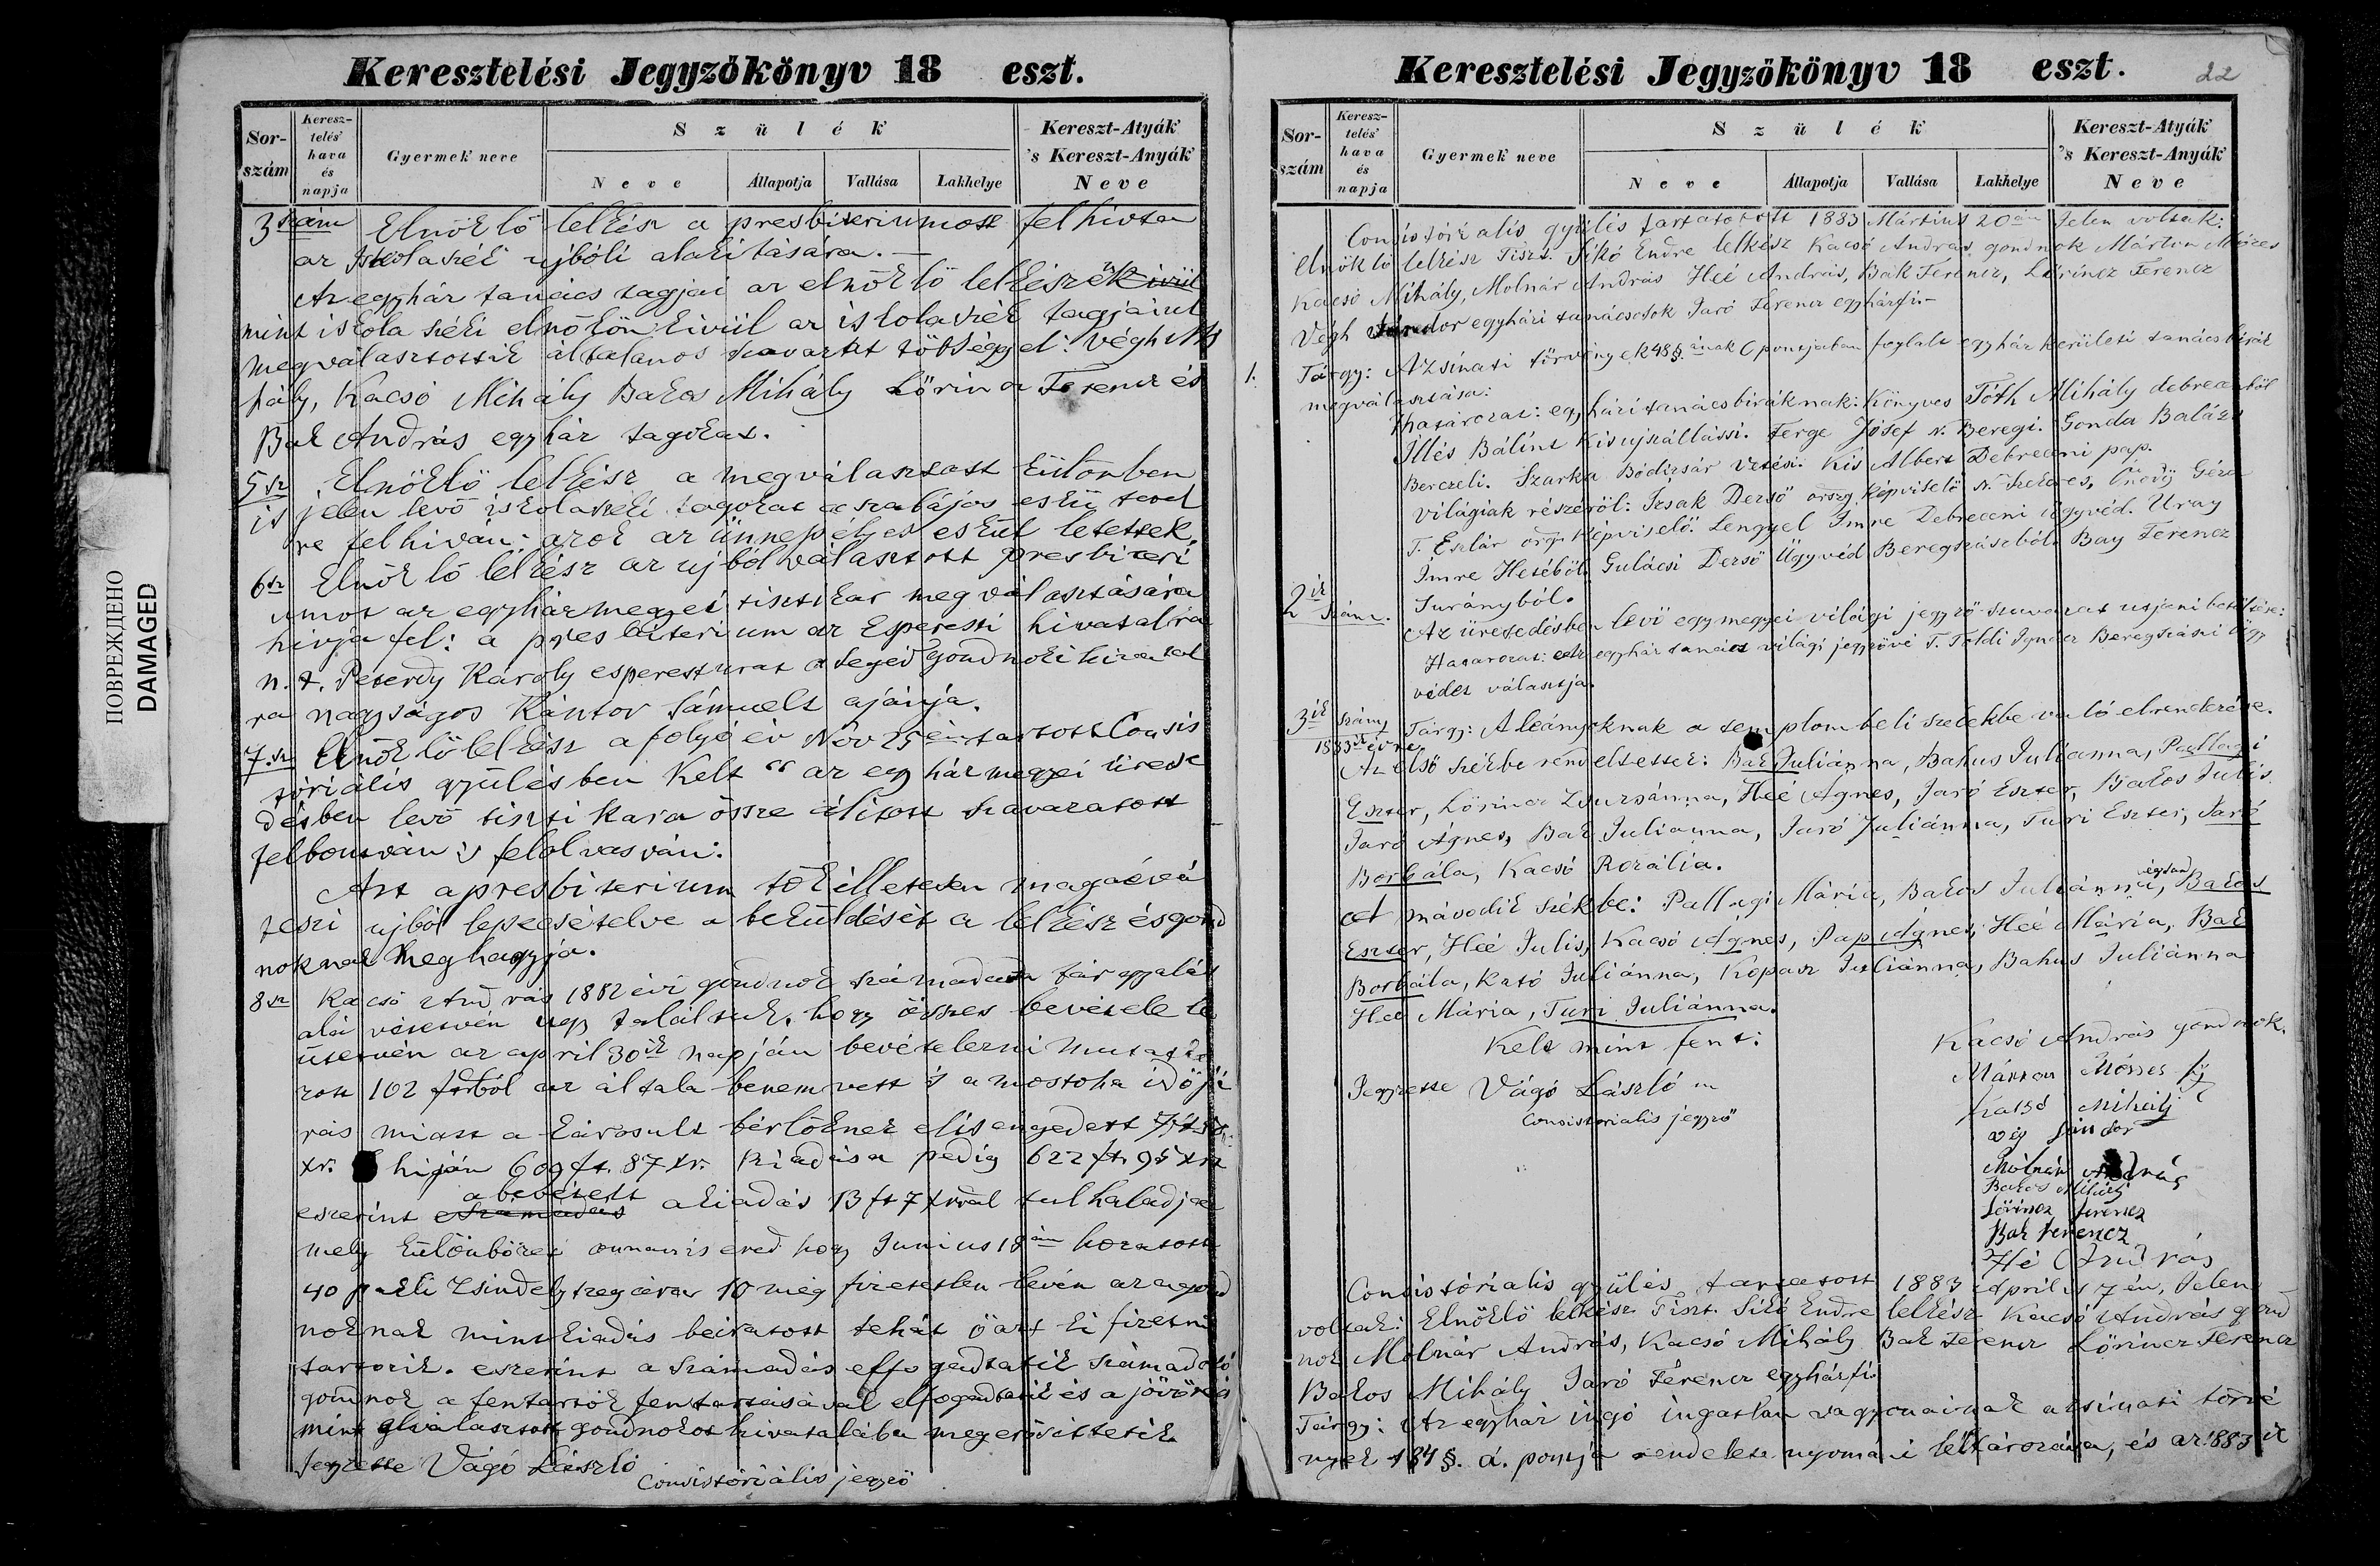 Keresztelési Jegyzőkönyv 18 eszt.
Sor-szám
Keresz-telés' hava és napja
Gyermek neve
Szülék
Neve
Állapotja
Vallása
Lakhelye
Kereszt-Atyák 's Kereszt-Anyák Neve
3 szám Elnöklő lelkész a presbiteriumot felhivta
az Iskolaszék ujbóli alakitására. —
Az egyház tanács tagjai az elnöklő lelkészek kivül
mint iskola széki elnökön kivül az iskolaszék tagjaiul
megválasztottik általános szavazat többséggel: Végh Mi
hály, Kacsó Mihály Bakos Mihály Lőrincz Ferencz és
Bak András egyház tagokat.
5 sz Elnöklő lelkész a megválasztott különben
is jelen levő iskolaszéki tagokat a szabályos eskü tevel
re felhiván: azok az ünnepélyes esküt letették.
6 sz Elnöklő lelkész az ujból választott presbiteri
umot az egyházmegyei tisztikar megválasztására
hivja fel: a presbiterium az Esperesti hivatalra
n. t. Peterdy Károly esperesturat a segéd gondnoki hivatal
ra nagyságos Kántor Sámuelt ajánja.
7. sz Elnöklő lelkész a folyó év Nov 25 én tartott Consis
tóriális gyülésben kelt az egyházmegyei ürese
désben levő tiszti karra össze álitott szavazatott
felbontván s felolvasván:
Azt a presbiterium tökilletesen magáévá
teszi ujból lepecsételve a beküldését a lelkész és gond
noknak meghagyja.
8 sz Kacsó András 1882 évi gondnok számadása tárgyalás
alá vétetvén ugy találtuk, hogy összes bevétele le
ütetvén az april 30ik napján bevételezni mutat
zott 102 ftból az általa be nem vett s a mostoha időjá
rás miatt a károsult bérlőknek elis engedett
xr. hiján 609 ft. 87 xr. kiadása pedig 622 ft 94 xr
eszerint a bevételt a kiadás 13 ft 7 xral tulhaladja
mely különbözet onnan is ered hogy Junius 18 án hozatott
40 pakli Zsindely szegávar 10 még fizetetlen lévén az a gond
noknak mint kiadás beiratott tehát ő azt ki fizetni
tartozik. eszerint a számadás elfogadtatik számadoló
gondnok a fentartók fentartásával elfogadtatik és a jövőre is
mint elválasztott gondnokos hivatalába megerősittetik
Jegyzette Vágó László
Consistóriális jegyző
ПОВРЕЖДЕНО
DAMAGED
Keresztelési Jegyzőkönyv 18 eszt.
22
Sor-szám
Keresz-telés' hava és napja
Gyermek neve
Szülék
Neve
Állapotja
Vallása
Lakhelye
Kereszt-Atyák 's Kereszt-Anyák Neve
Consistóriális gyülés tartatott 1883 Mártius 20 án Jelen voltak:
Elnöklő lelkész Tiszt. Sikó Endre lelkész Kacsó András gondnok Márton Mózes
Kacsó Mihály, Molnár András Heé András, Bak Ferencz, Lőrincz Ferencz
Végh Sándor egyházi tanácsosok Jaró Ferencz egyházfi. —
1. Tárgy: A Zsinati törvények 48 §. ának C pontjában foglalt egyház kerületi tanácsbirák
megválasztása:
Hatarozat: egyházi tanácsbiráknak: Könyves Tóth Mihály debreczenből
Illés Bálint Kisujszállási. Ferge Jósef N. Beregi. Gonda Balázs
Berczeli. Szarka Bódizsár Vetési. Kis Albert Debreczeni pap.
Világiak részéről: Irsak Dezső orszg. képviselő N. Szekeres, Ónody Géza
T. Eszlár orzg. képviselő. Lengyel Imre Debreceni ügyvéd. Uray
Imre Hetéből. Gulácsi Dezső Ügyvéd Beregszászból. Bay Ferencz
Surányból.
2 ik szám. Az üresedésben levő egymegyei világi jegyző szavazat utjani betöltése:
Hatarozat: Az egyház tanács világi jegyzővé T. Toldi Ignácz Beregszászi ügy
védet választja.
3 ik szám 1883ik évre Tárgy: A leányoknak a templombeli székekbe való elrendezése.
Az első székbe rendeltettek: Bak Juliánna, Bakus Julianna, Pallagi
Eszter, Lőrincz Zsuzsánna, Heé Ágnes, Jaró Eszter, Bakos Julis
Jaró Ágnes, Bak Julianna, Jaró Juliánna, Turi Eszter, Jaró
Borbála, Kacsó Rozália.
A második székbe: Pallagi Mária, Bakos Juliánna, Bakos
Eszter, Heé Julis, Kacsó Ágnes, Pap Ágnes, Heé Mária, Bak
Borbála, Kató Juliánna, Kopasz Juliánna, Bakus Juliánna
Heé Mária, Turi Juliánna.
Kelt mint fent:
Jegyzette Vágó László
Consistorialis jegyző
Kacsó András gondnok.
Márton Mózses
Katsó Mihály
Vég Sándor
Molnár András
Bakos Mihály
Lőrincz Ferencz
Bak Ferencz
Hé András
Consistóriális gyülés tartatott 1883 Április 7 én, Jelen
voltak: Elnöklő lelkész Tiszt. Sikó Endre lelkész Kacsó András gond
nok Molnár András, Kacsó Mihály Bak Ferencz Lőrincz Ferencz
Bakos Mihály Jaró Ferencz egyházfi.
Tárgy: Az egyház ingó ingatlan vagyonainak a zsinati törvé
nyek 184 §. d. pontja rendelete nyománi léltározása, és az 1883 ik